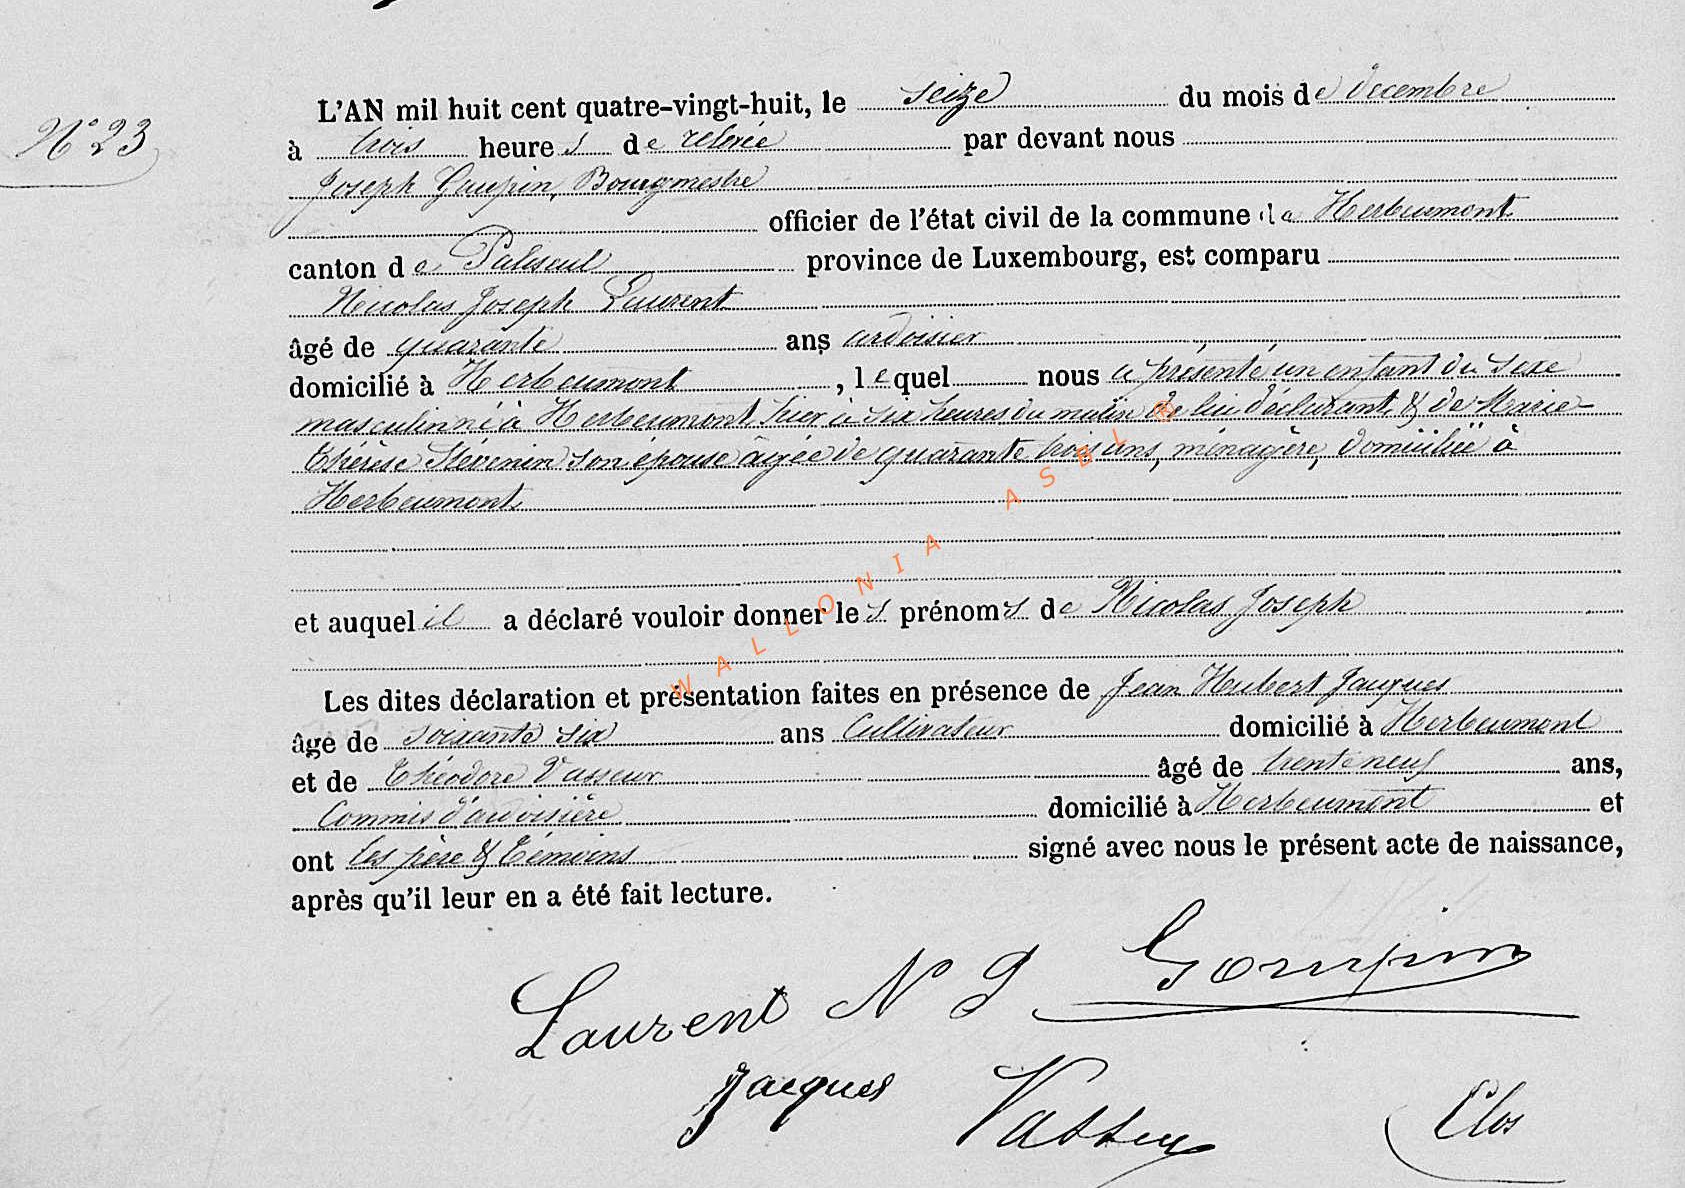 L'AN mil huit cent quatre-vingt-huit, le seize du mois de Decembre
N° 23
à trois heures de relevée par devant nous
Joseph Goupin, Bourgmestre
officier de l'état civil de la commune de Herbeumont
canton de Paliseul province de Luxembourg, est comparu
Nicolas Joseph Laurent
âgé de quarante ans ardoisier
domicilié à Herbeumont, lequel nous a présenté un enfant du sexe
masculin né à Herbeumont, hier à six heures du matin de lui déclarant & de Marie-
Thérèse Stévenin son épouse âgée de quarante trois ans, ménagère, domiciliée à
Herbeumont
et auquel il a déclaré vouloir donner les prénoms de Nicolas Joseph
Les dites déclaration et présentation faites en présence de Jean Hubert Jacques
âge de soixante six ans Cultivateur domicilié à Herbeumont
et de Théodore Vasseur âgé de trente neuf ans,
Commis d'ardoisière domicilié à Herbeumont et
ont les père & témoins signé avec nous le présent acte de naissance,
après qu'il leur en a été fait lecture.
Laurent N J Goupin
Jacques Vasseur Clos
WALLONIA ASBL ®